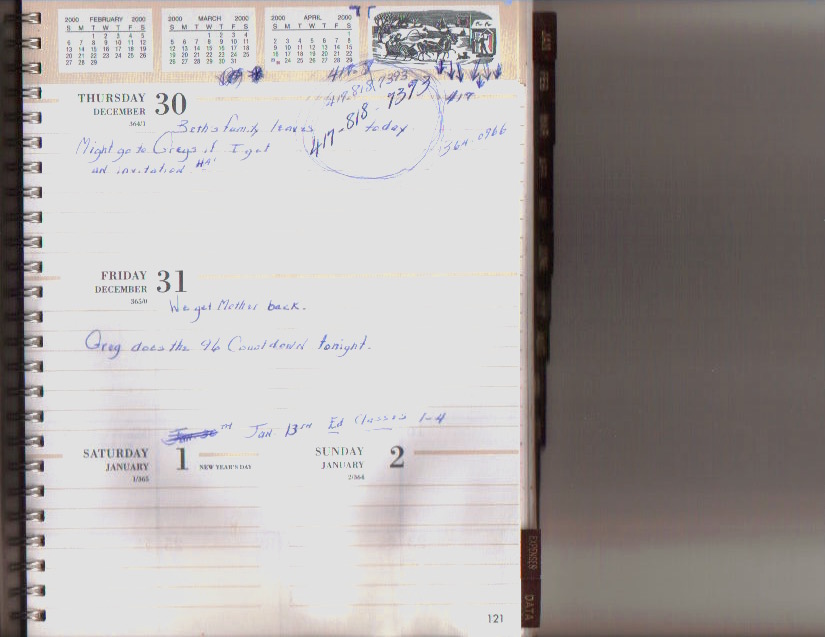 2000 FEBRUARY 2000
S M T W T F S
1 2 3 4 5
6 7 8 9 10 11 12
13 14 15 16 17 18 19
20 21 22 23 24 25 26
27 28 29
2000 MARCH 2000
S M T W T F S
1 2 3 4
5 6 7 8 9 10 11
12 13 14 15 16 17 18
19 20 21 22 23 24 25
26 27 28 29 30 31
2000 APRIL 2000
S M T W T F S
1
2 3 4 5 6 7 8
9 10 11 12 13 14 15
16 17 18 19 20 21 22
23 30 24 25 26 27 28 29
417-8
417-818-9393
417
417-818-9393
364-0966
THURSDAY 30
DECEMBER
364/1
Beth's family leaves today.
Might go to Gregs if I get
an invitation HA!
FRIDAY 31
DECEMBER
365/0
We get Mother back.
Greg does the 96 Countdown tonight.
TH Jan 13TH Ed Classes 1-4
SATURDAY 1 NEW YEAR'S DAY
JANUARY
1/365
SUNDAY 2
JANUARY
2/364
121
JAN
FEB
MAR
EXPENSES
DATA